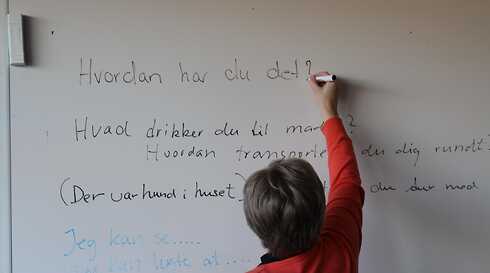 Hvordan har du det?
Hvad drikker du til ?
Hvordan du dig rundt?
(Der var hund i huset) du bor med
Jeg kan se.....
at.....